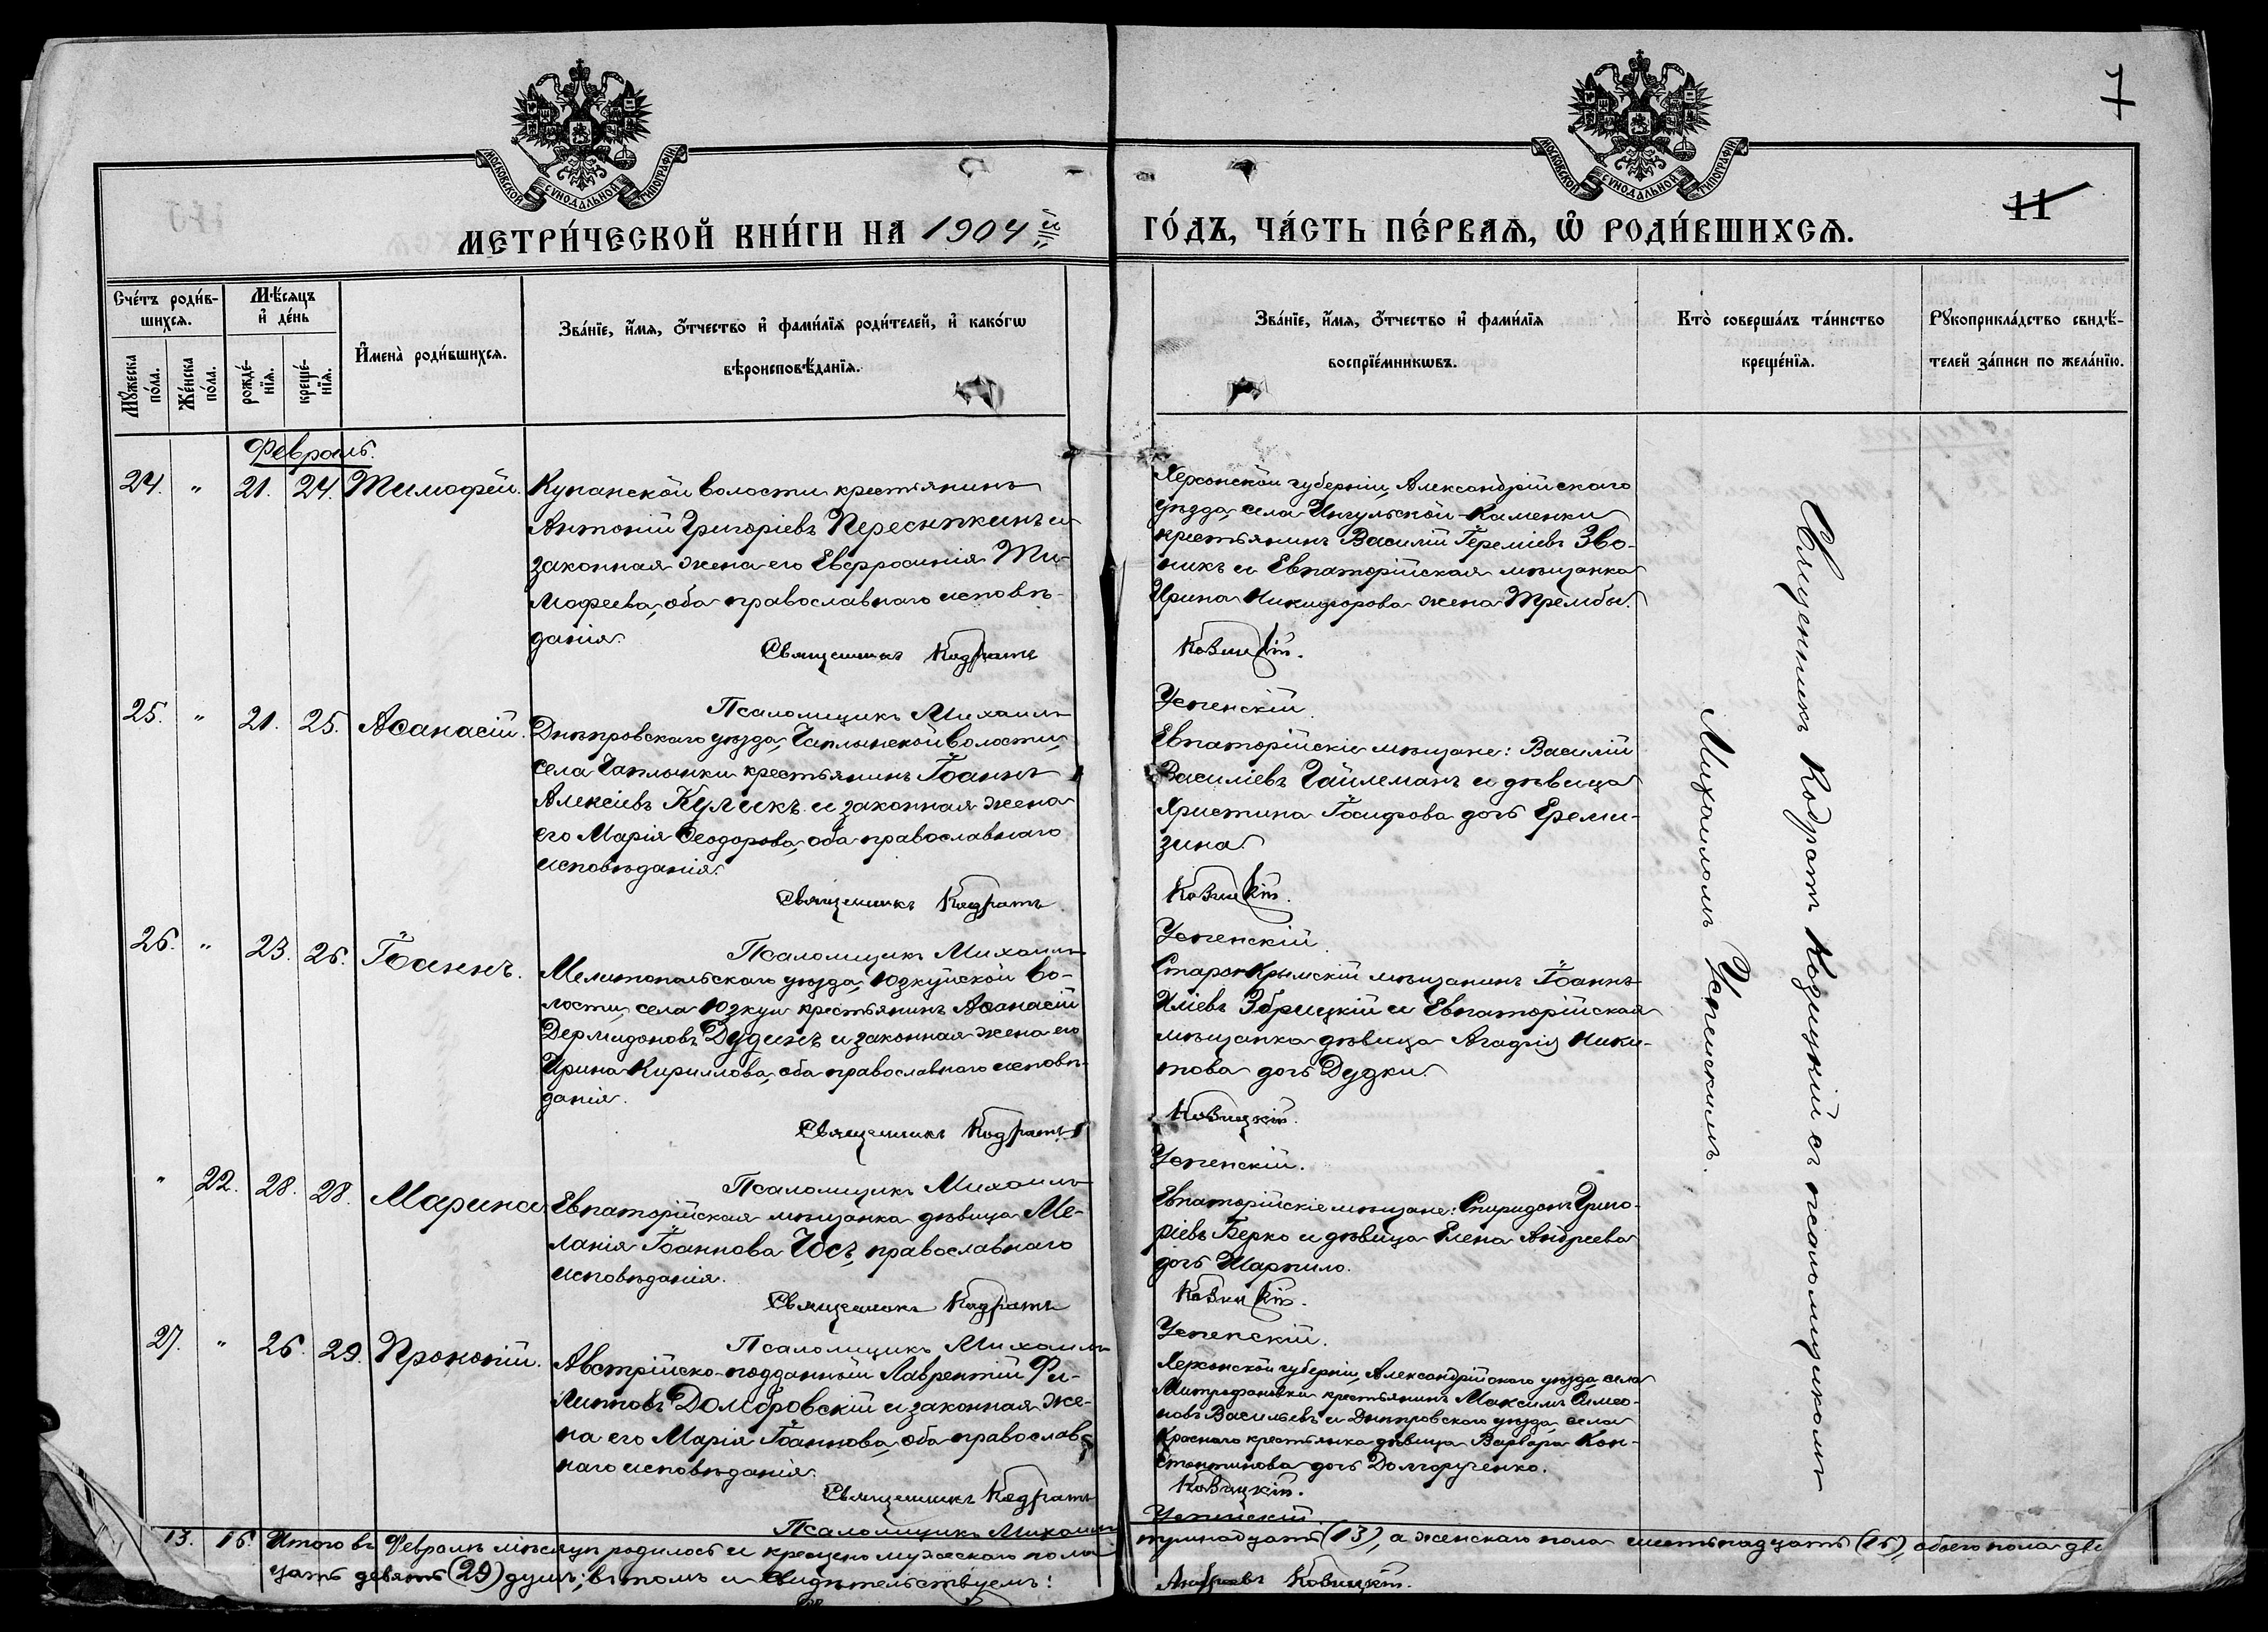 7
11
МОСКОВСКОЙ СѴНОДАЛЬНОЙ ТИПОГРАФІИ
МОСКОВСКОЙ СѴНОДАЛЬНОЙ ТИПОГРАФІИ
МЕТРИ́ЧЕСКОЙ КНИ́ГИ НА 1904 й
ГО́ДЪ, ЧА́СТЬ ПЕ́РВАѦ, Ѿ РОДИ́ВШИХСѦ.
Сче́тъ роди́в-
шихсѧ.
Мꙋ́жеска по́ла.
Же́нска по́ла.
Мѣ́сѧцъ
и҆ де́нь
рожде́-
нїѧ.
креще́-
нїѧ.
И҆мена̀ роди́вшихсѧ.
Зва́нїе, и҆́мѧ, ѻ҆́тчество и҆ фами́лїѧ роди́телей, и҆ како́гѡ
вѣроисповѣ́данїѧ.
Зва́нїе, и҆́мѧ, ѻ҆́тчество и҆ фами́лїѧ
воспрїе́мникѡвъ.
Кто̀ соверша́лъ та́инство
креще́нїѧ.
Рꙋкоприкла́дство свидѣ́-
телей за́писи по жела́нїю.
Февраль.
24. " 21. 24. Тимофей.
Купанской волости крестьянинъ
Антоній Григоріевъ Пересыпкинъ и
законная жена его Евфросинія Ти-
мофеева, оба православнаго исповѣ-
данія.
Священникъ Кодратъ
Псаломщикъ Михаилъ
Херсонской губерніи, Александрійскаго
уѣзда, села Ингульской-Каменки
крестьянинъ Василій Іереміевъ Зво-
никъ и Евпаторійская мѣщанка
Ирина Никифорова жена Трембы.
Козицкій.
Успенскій
25. " 21. 25. Аѳанасій.
Днѣпровскаго уѣзда, Чаплынской волости,
села Чаплынки крестьянинъ Іоаннъ
Алексіевъ Куликъ и законная жена
его Марія Ѳеодорова, оба православнаго
исповѣданія.
Священникъ Кодратъ
Псаломщикъ Михаилъ
Евпаторійскіе мѣщане: Василій
Василіевъ Гайлеманъ и дѣвица
Христина Іосифова дочь Ереми-
зина.
Козицкій.
Успенскій.
26. " 23. 26. Іоаннъ.
Мелитопольскаго уѣзда, Юзкуйской во-
лости, села Юзкуи крестьянинъ Аѳанасій
Дермидоновъ Дудинъ и законная жена его
Ирина Кириллова, оба православнаго исповѣ-
данія.
Священникъ Кодратъ
Псаломщикъ Михаилъ
Старо-Крымскій мѣщанинъ Іоаннъ
Иліевъ Збрицкій и Евпаторійская
мѣщанка дѣвица Агафія Ники-
това дочь Дудки.
Козицкій.
Успенскій.
" 22. 28. 28. Марина
Евпаторійская мѣщанка дѣвица Ме-
ланія Іоаннова Чосъ, православнаго
исповѣданія.
Священникъ Кодратъ
Псаломщикъ Михаилъ
Евпаторійскіе мѣщане: Спиридонъ Григо-
ріевъ Берко и дѣвица Елена Андреева
дочь Шарпило.
Козицкій.
Успенскій.
27. " 26. 29. Прокопій.
Австрійско-подданный Лаврентій Фи-
липповъ Домбровскій и законная же-
на его Марія Іоаннова, оба православ-
наго исповѣданія.
Священникъ Кодратъ
Псаломщикъ Михаилъ
Херсонской губерніи, Александрійскаго уѣзда, села
Митрофановки крестьянинъ Максимъ Симео-
новъ Васильевъ и Днѣпровскаго уѣзда, села
Краснаго крестьянка дѣвица Варвара Кон-
стантинова дочь Долгорученко.
Козицкій.
Успенскій
Священникъ Кодратъ Козицкій съ псаломщикомъ
Михаиломъ Успенскимъ.
13. 16. Итого въ Февралѣ мѣсяцѣ родилось и крещено мужескаго пола
тринадцать (13), а женскаго пола шестнадцать (16), обоего пола два
цать девять (29) душъ; въ томъ и свидѣтельствуемъ:
Козицкій.